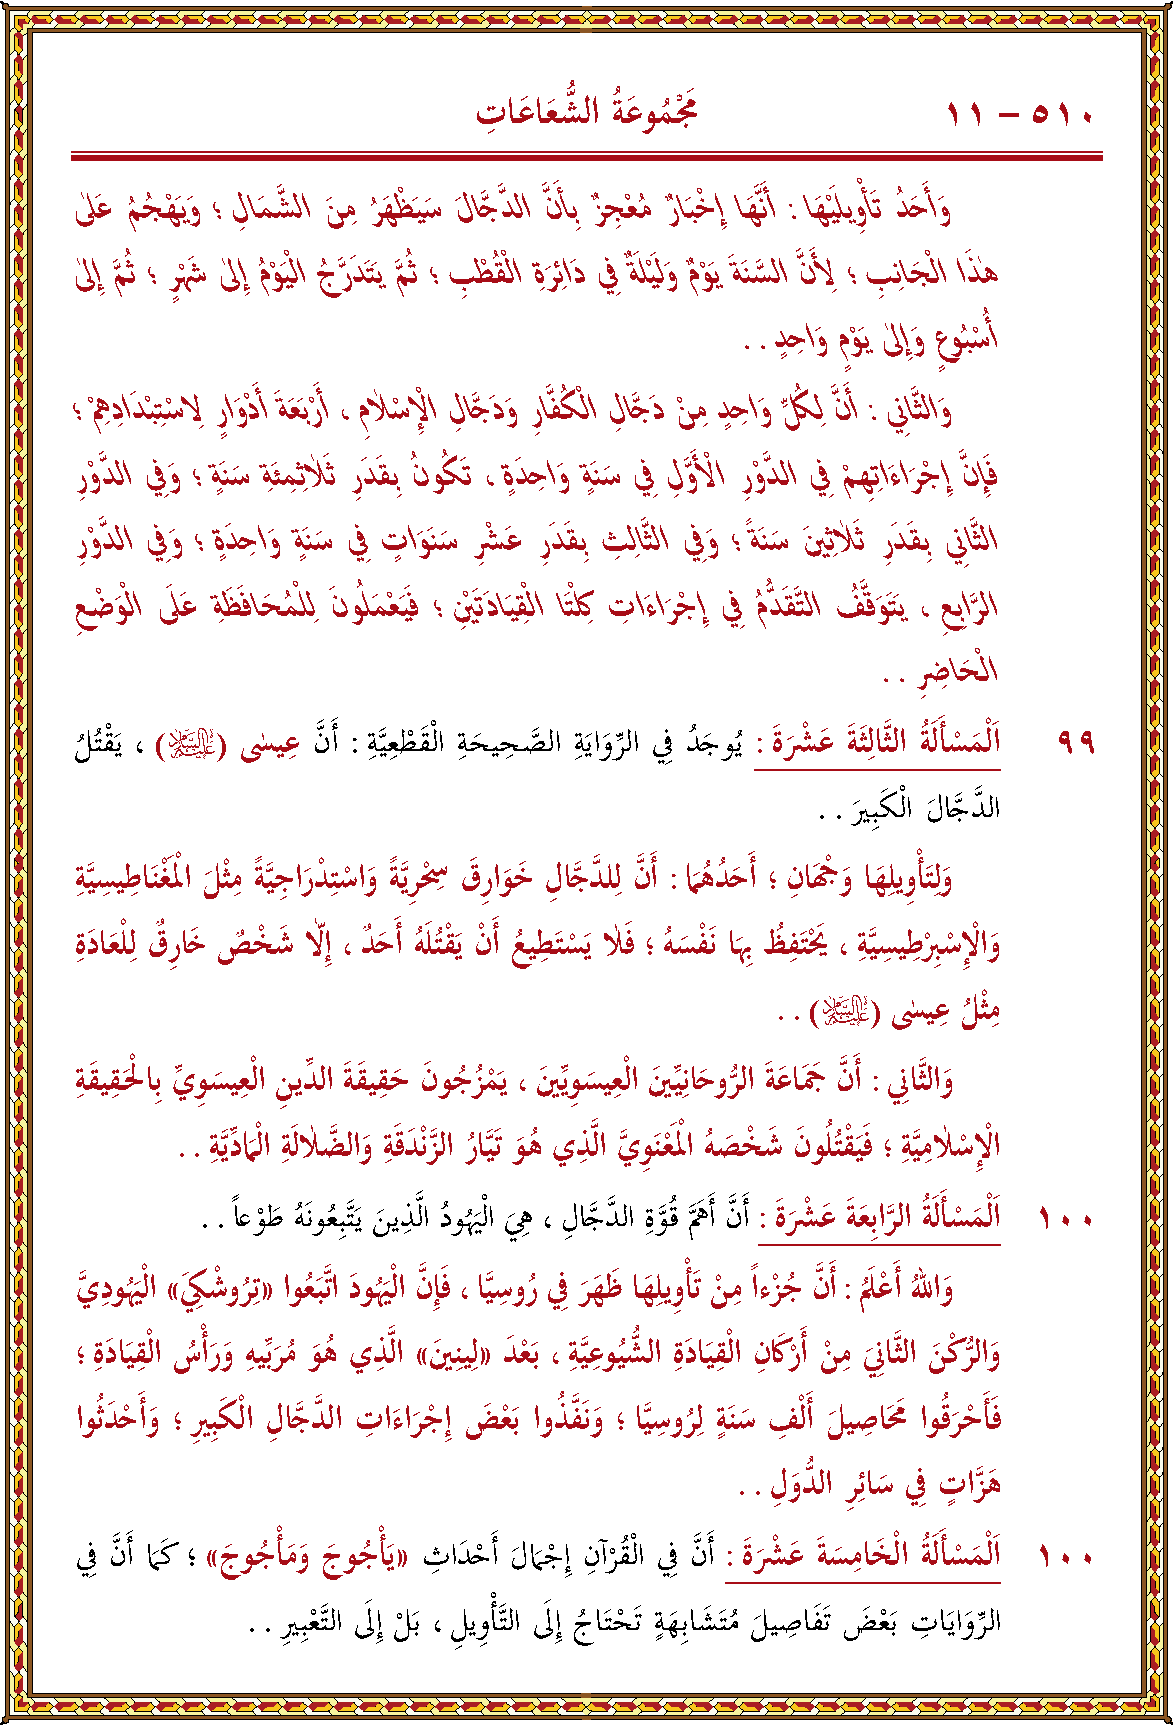 ٥١٠ - ١١ مَجْمُوعَةُ الشُّعَاعَاتِ
وَأَحَدُ تَأْوِيلَيْهَا : أَنَّهَا إِخْبَارٌ مُعْجِزٌ بِأَنَّ الدَّجَّالَ سَيَظْهَرُ مِنَ الشَّمَالِ ؛ وَيَهْجُمُ عَلىٰ
هٰذَا الْجَانِبِ ؛ لِأَنَّ السَّنَةَ يَوْمٌ وَلَيْلَةٌ فِي دَائِرَةِ الْقُطْبِ ؛ ثُمَّ يَتَدَرَّجُ الْيَوْمُ إِلىٰ شَهْرٍ ؛ ثُمَّ إِلىٰ
أُسْبُوعٍ وَإِلىٰ يَوْمٍ وَاحِدٍ . .
وَالثَّانِي : أَنَّ لِكُلِّ وَاحِدٍ مِنْ دَجَّالِ الْكُفَّارِ وَدَجَّالِ الْإِسْلَامِ ، أَرْبَعَةَ أَدْوَارٍ لِاسْتِبْدَادِهِمْ ؛
فَإِنَّ إِجْرَاءَاتِهِمْ فِي الدَّوْرِ الْأَوَّلِ فِي سَنَةٍ وَاحِدَةٍ ، تَكُونُ بِقَدَرِ ثَلٰاثِمِئَةِ سَنَةٍ ؛ وَفِي الدَّوْرِ
الثَّانِي بِقَدَرِ ثَلٰاثِينَ سَنَةً ؛ وَفِي الثَّالِثِ بِقَدَرِ عَشْرِ سَنَوَاتٍ فِي سَنَةٍ وَاحِدَةٍ ؛ وَفِي الدَّوْرِ
الرَّابِعِ ، يَتَوَقَّفُ التَّقَدُّمُ فِي إِجْرَاءَاتِ كِلْتَا الْقِيَادَتَيْنِ ؛ فَيَعْمَلُونَ لِلْمُحَافَظَةِ عَلَى الْوَضْعِ
الْحَاضِرِ . .
٩٩ اَلْمَسْأَلَةُ الثَّالِثَةَ عَشْرَةَ : يُوجَدُ فِي الرِّوَايَةِ الصَّحِيحَةِ الْقَطْعِيَّةِ : أَنَّ عِيسٰى (عَلَيْهِ السَّلَامُ) ، يَقْتُلُ
الدَّجَّالَ الْكَبِيرَ . .
وَلِتَأْوِيلِهَا وَجْهَانِ ؛ أَحَدُهُمَا : أَنَّ لِلدَّجَّالِ خَوَارِقَ سِحْرِيَّةً وَاسْتِدْرَاجِيَّةً مِثْلَ الْمَغْنَاطِيسِيَّةِ
وَالْإِسْبِرْطِيسِيَّةِ ، يَحْتَفِظُ بِهَا نَفْسَهُ ؛ فَلٰا يَسْتَطِيعُ أَنْ يَقْتُلَهُ أَحَدٌ ، إِلّٰا شَخْصٌ خَارِقٌ لِلْعَادَةِ
مِثْلُ عِيسٰى (عَلَيْهِ السَّلَامُ) . .
وَالثَّانِي : أَنَّ جَمَاعَةَ الرُّوحَانِيِّينَ الْعِيسَوِيِّينَ ، يَمْزُجُونَ حَقِيقَةَ الدِّينِ الْعِيسَوِيِّ بِالْحَقِيقَةِ
الْإِسْلٰامِيَّةِ ؛ فَيَقْتُلُونَ شَخْصَهُ الْمَعْنَوِيَّ الَّذِي هُوَ تَيَّارُ الزَّنْدَقَةِ وَالضَّلٰالَةِ الْمَادِّيَّةِ . .
١٠٠ اَلْمَسْأَلَةُ الرَّابِعَةَ عَشْرَةَ : أَنَّ أَهَمَّ قُوَّةِ الدَّجَّالِ ، هِيَ الْيَهُودُ الَّذِينَ يَتَّبِعُونَهُ طَوْعاً . .
وَاللهُ أَعْلَمُ : أَنَّ جُزْءاً مِنْ تَأْوِيلِهَا ظَهَرَ فِي رُوسِيَّا ، فَإِنَّ الْيَهُودَ اتَّبَعُوا «تِرُوشْكِيَ» الْيَهُودِيَّ
وَالرُّكْنَ الثَّانَيَ مِنْ أَرْكَانِ الْقِيَادَةِ الشُّيُوعِيَّةِ ، بَعْدَ «لِينِينَ» الَّذِي هُوَ مُرَبِّيهِ وَرَأْسُ الْقِيَادَةِ ؛
فَأَحْرَقُوا مَحَاصِيلَ أَلْفِ سَنَةٍ لِرُوسِيَّا ؛ وَنَفَّذُوا بَعْضَ إِجْرَاءَاتِ الدَّجَّالِ الْكَبِيرِ ؛ وَأَحْدَثُوا
هَزَّاتٍ فِي سَائِرِ الدُّوَلِ . .
١٠٠ اَلْمَسْأَلَةُ الْخَامِسَةَ عَشْرَةَ : أَنَّ فِي الْقُرْآنِ إِجْمَالَ أَحْدَاثِ «يَأْجُوجَ وَمَأْجُوجَ» ؛ كَمَا أَنَّ فِي
الرِّوَايَاتِ بَعْضَ تَفَاصِيلَ مُتَشَابِهَةٍ تَحْتَاجُ إِلَى التَّأْوِيلِ ، بَلْ إِلَى التَّعْبِيرِ . .